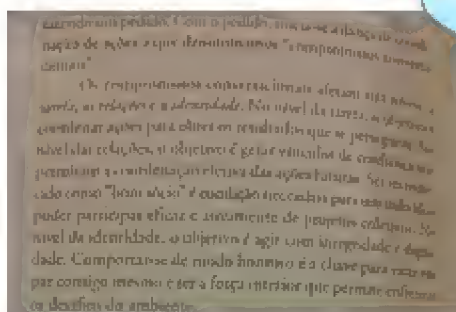 atendem um pedido. Com o pedido, inicia-se a dança da coorde-
nação de ações a que denominamos "compromissos conversa-
cionais".
Os compromissos conversacionais afetam três níveis: a
tarefa, as relações e a identidade. No nível da tarefa, o objetivo é
coordenar ações para obter os resultados que se perseguem. No
nível das relações, o objetivo é gerar vínculos de confiança que
permitam a coordenação efetiva das ações futuras. Ser
cado como "bom sócio" é condição necessária para
poder participar eficaz e ativamente de projetos coletivos. No
nível da identidade, o objetivo é agir com integridade e digni-
dade. Comportar-se de modo honroso é a chave para estar em
paz consigo mesmo e ter a força interior que permite enfrentar
os desafios do ambiente.